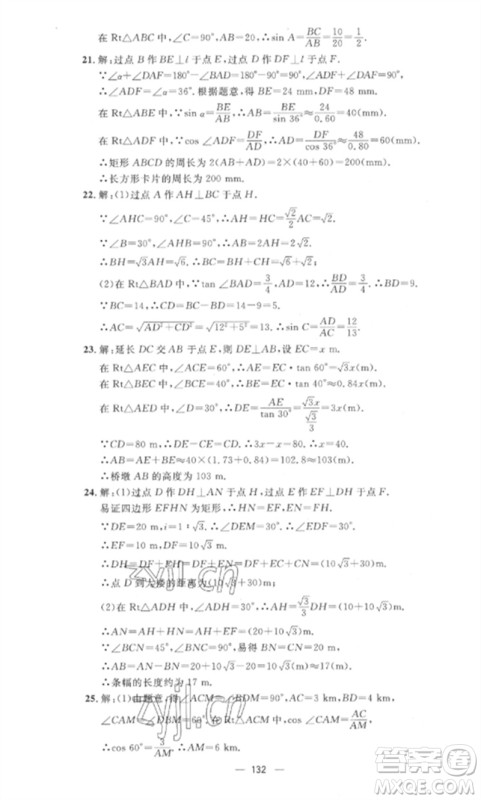 在 Rt△ABC 中,∠C=90°,∴sin A=BC/AB=10/20=1/2.
21.解:过点 B 作 BE⊥l 于点 E,过点 D 作 DF⊥l 于点 F.
∵∠α+∠DAF=180°-∠BAD=180°-90°=90°,∠ADF+∠DAF=90°,
∴∠ADF=∠α=36°.根据题意,得 BE=24 mm,DF=48 mm.
在 Rt△ABE 中,∵sin α=BE/AB,∴AB=BE/sin 36°≈24/0.60=40(mm).
在 Rt△ADF 中,∵cos∠ADF=DF/AD,∴AD=DF/cos 36°≈48/0.80=60(mm).
∴矩形 ABCD 的周长为 2(AB+AD)=2×(40+60)=200(mm).
∴长方形卡片的周长为 200 mm.
22.解:(1)过点 A 作 AH⊥BC 于点 H.
∵∠AHC=90°,∠C=45°,∴AH=HC=√2/2AC=√2.
∵∠B=30°,∠AHB=90°,∴AB=2AH=2√2.
∴BH=√3AH=√6.∴BC=BH+CH=√6+√2;
(2)在 Rt△BAD 中,∵tan∠BAD=3/4,AD=12,∴BD/AD=3/4.∴BD=9.
∵BC=14,∴CD=BC-BD=14-9=5.
∴AC=√(AD²+CD²)=√(12²+5²)=13.∴sin C=AD/AC=12/13.
23.解:延长 DC 交 AB 于点 E,则 DE⊥AB,设 EC=x m.
在 Rt△AEC 中,∠ACE=60°,∴AE=EC·tan 60°=√3x(m).
在 Rt△BEC 中,∠BCE=40°,∴BE=EC·tan 40°≈0.84x(m).
在 Rt△AED 中,∠D=30°,∴DE=AE/tan 30°=√3x/(√3/3)=3x(m).
∵CD=80 m,∴DE-EC=CD=80.∴3x-x=80.∴x=40.
∴AB=AE+BE≈40×(1.73+0.84)=102.8≈103(m).
∴桥墩 AB 的高度为 103 m.
24.解:(1)过点 D 作 DH⊥AN 于点 H,过点 E 作 EF⊥DH 于点 F.
易证四边形 EFHN 为矩形.
∵DE=20 m,i=1∶√3,∴∠DEM=30°.∴∠EDF=60°.
∴EF=10 m,DF=10√3 m.
∴DH=DF+FH=DF+EN=DF+EC+CN=(10√3+30)m.
∴点 D 到大楼的距离为(10√3+30)m;
(2)在 Rt△ADH 中,∵∠ADH=30°,∴AH=√3/3DH=(10+10√3)m.
∴AN=AH+HN=AH+EF=(20+10√3)m.
∵∠BCN=45°,∠BNC=90°,∴BN=CN=20 m.
∴AB=AN-BN=20+10√3-20=10√3≈17(m).
∴条幅的长度为 17 m.
25.解:(1)由题意,得∠ACM=∠BDM=90°,AC=3 km,BD=4 km,
∠CAM=∠DBM=60°.在 Rt△ACM 中,∵cos∠CAM=AC/AM,
∴cos 60°=3/AM.∴AM=6 km.
132
zyjl.cn
zyjl.cn
答案圈
MXQE.COM